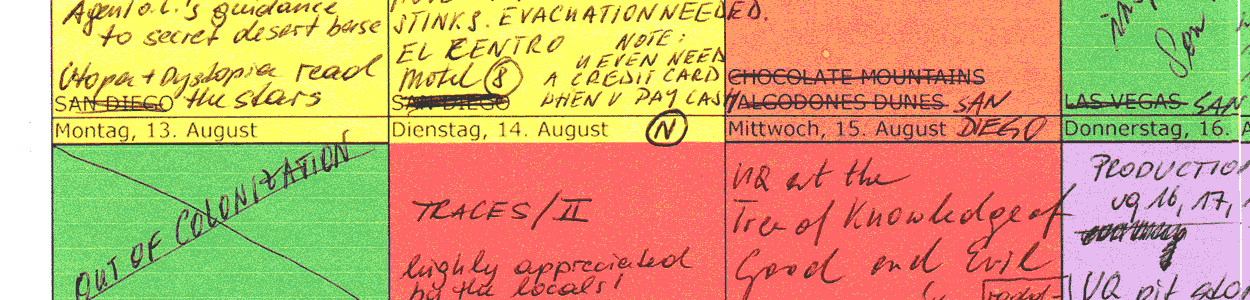 Agent o.l.'s guidance
to secret desert base
Utopia + Dystopia read
SAN DIEGO the stars
STINKS. EVACUATION NEEDED.
EL CENTRO NOTE:
U EVEN NEED
Motel 8 A CREDIT CARD
SAN DIEGO WHEN U PAY CASH
CHOCOLATE MOUNTAINS
ALGODONES DUNES SAN
DIEGO
LAS VEGAS SAN
Montag, 13. August
Dienstag, 14. August N
Mittwoch, 15. August
Donnerstag, 16. A
OUT OF COLONIZATION
TRACES/II
highly appreciated
by the locals!
UQ at the
Tree of Knowledge of
Good and Evil
PRODUCTION
uq 16, 17,
UQ pit